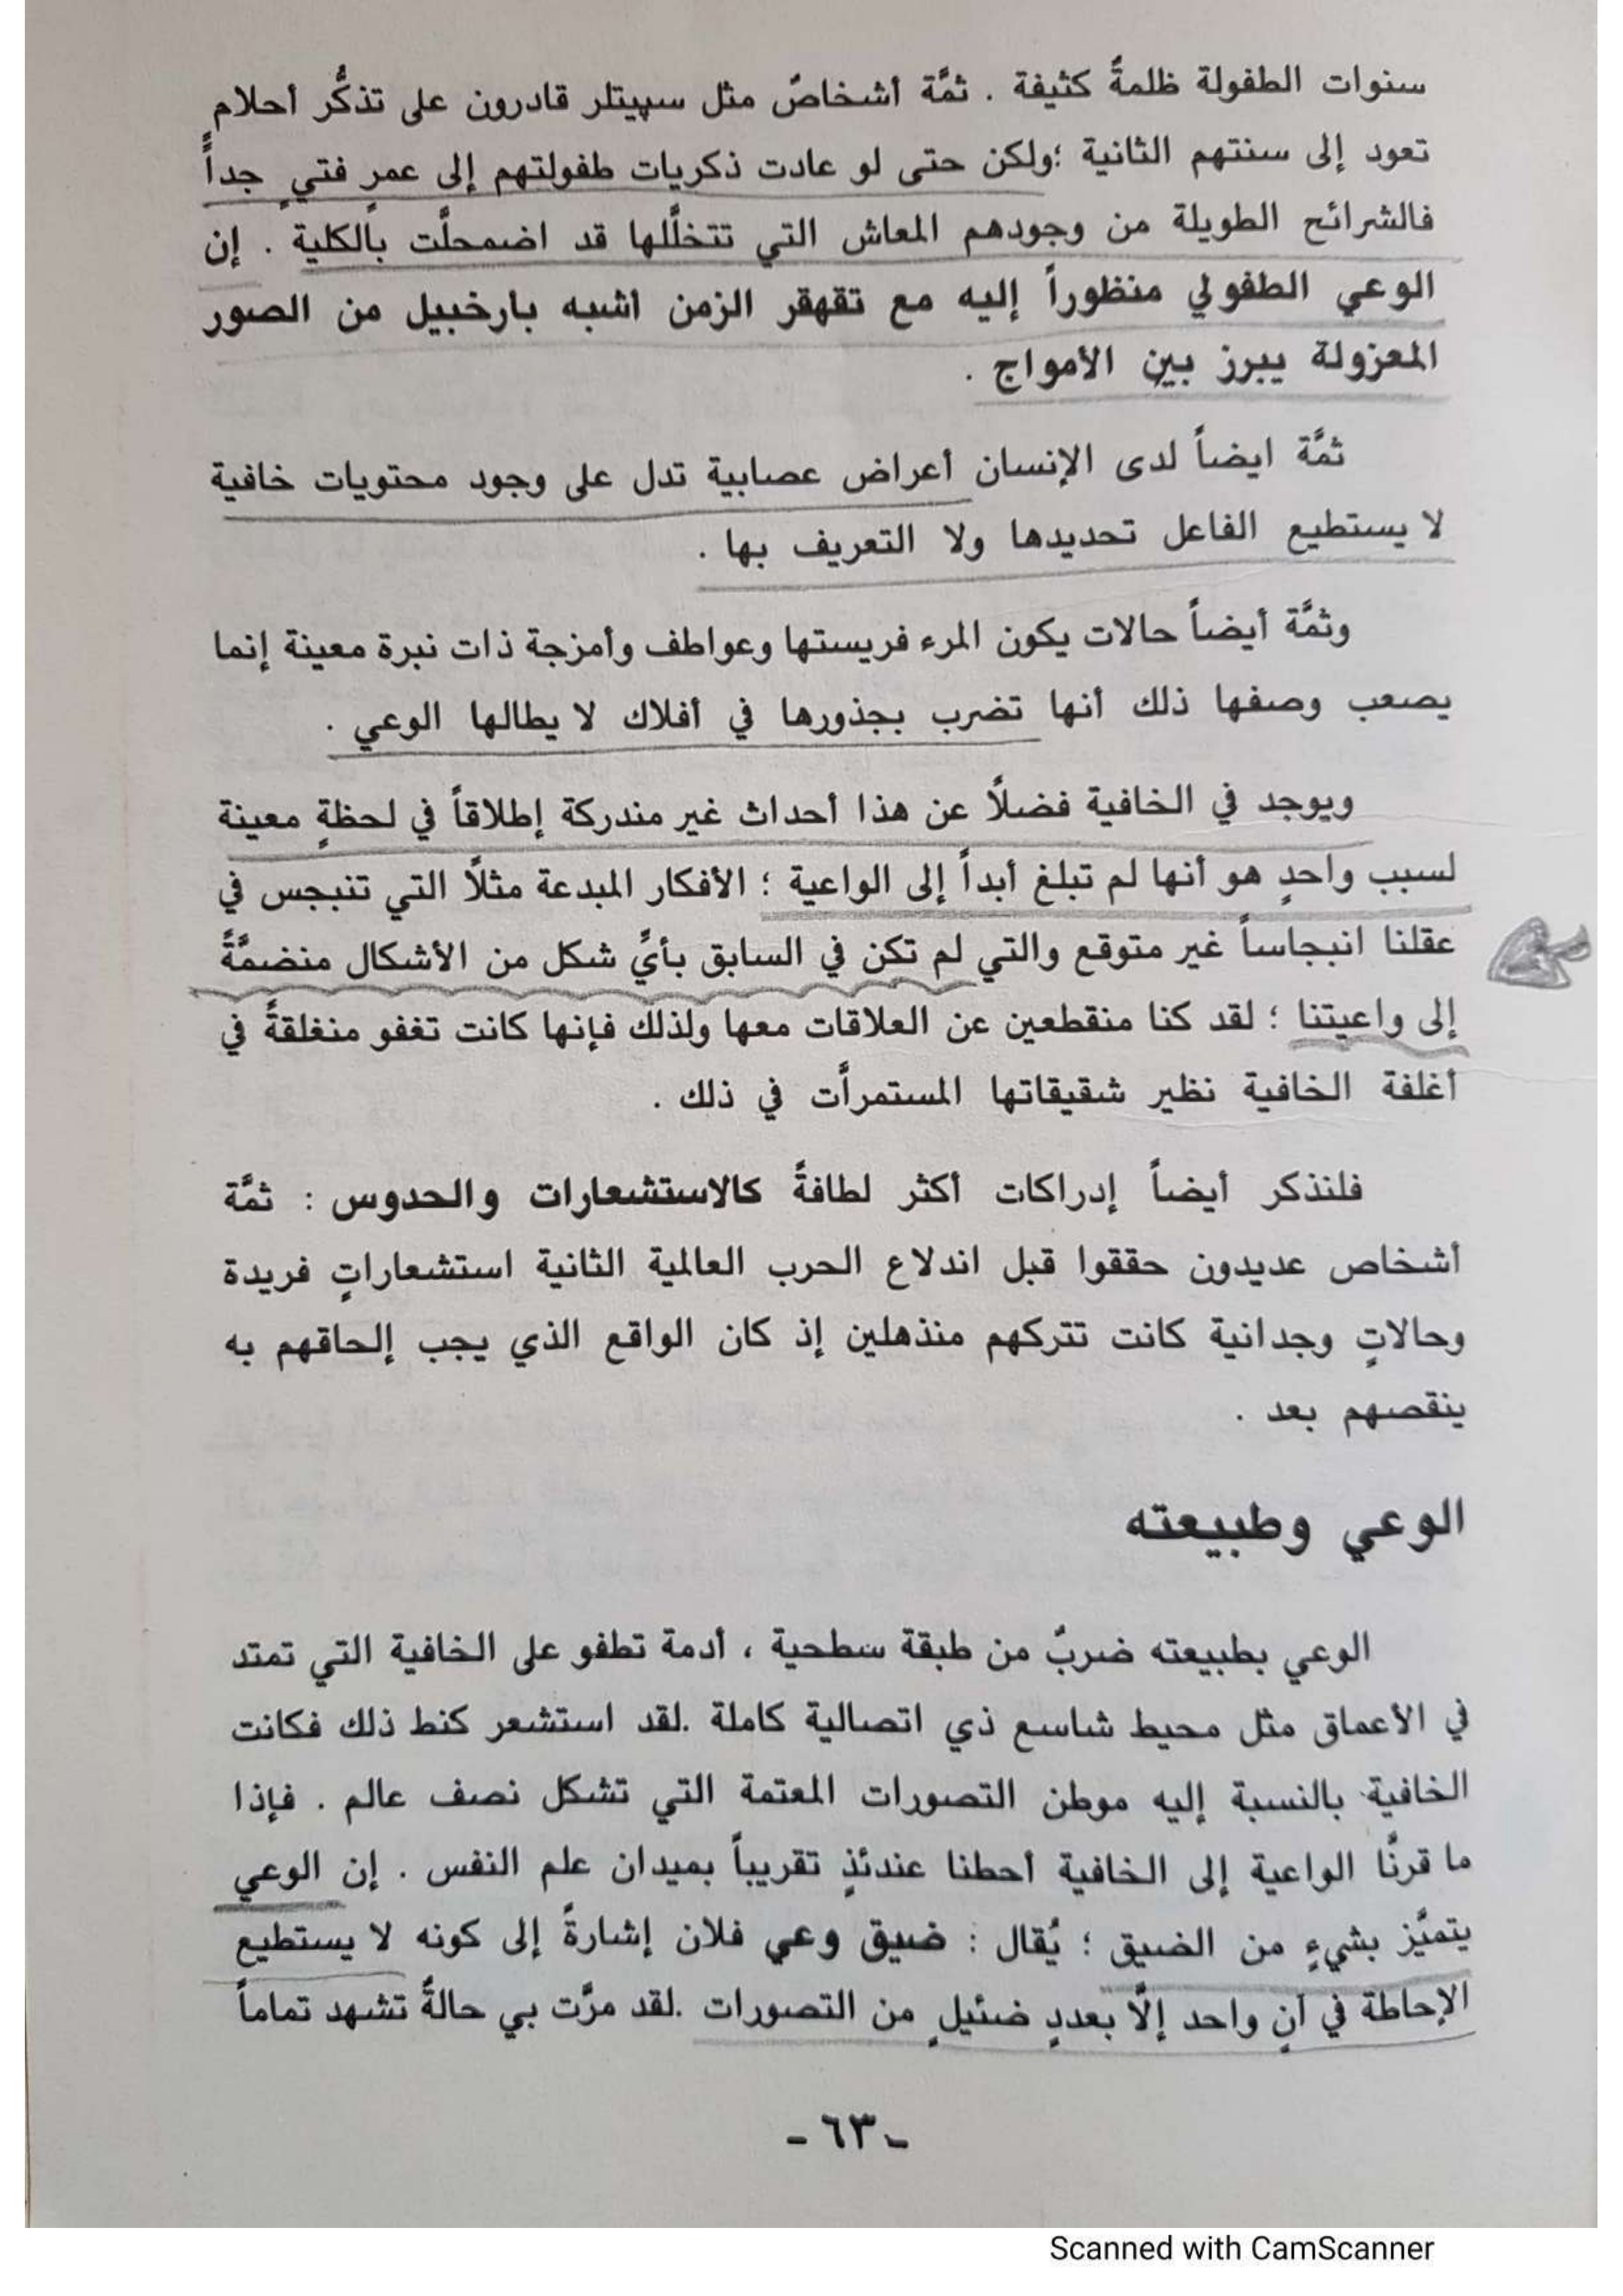 سنوات الطفولة ظلمةً كثيفة . ثمَّة أشخاصٌ مثل سپيتلر قادرون على تذكُّر أحلام
تعود إلى سنتهم الثانية ؛ولكن حتى لو عادت ذكريات طفولتهم إلى عمرٍ فتيٍ جداً
فالشرائح الطويلة من وجودهم المعاش التي تتخلَّلها قد اضمحلَّت بالكلية . إن
الوعي الطفولي منظوراً إليه مع تقهقر الزمن اشبه بارخبيل من الصور
المعزولة يبرز بين الأمواج .
ثمَّة ايضاً لدى الإنسان أعراض عصابية تدل على وجود محتويات خافية
لا يستطيع الفاعل تحديدها ولا التعريف بها .
وثمَّة أيضاً حالات يكون المرء فريستها وعواطف وأمزجة ذات نبرة معينة إنما
يصعب وصفها ذلك أنها تضرب بجذورها في أفلاك لا يطالها الوعي .
ويوجد في الخافية فضلاً عن هذا أحداث غير مندركة إطلاقاً في لحظةٍ معينة
لسبب واحدٍ هو أنها لم تبلغ أبداً إلى الواعية ؛ الأفكار المبدعة مثلاً التي تنبجس في
عقلنا انبجاساً غير متوقع والتي لم تكن في السابق بأيِّ شكل من الأشكال منضمَّةً
إلى واعيتنا ؛ لقد كنا منقطعين عن العلاقات معها ولذلك فإنها كانت تغفو منغلقةً في
أغلفة الخافية نظير شقيقاتها المستمرأت في ذلك .
فلنذكر أيضاً إدراكات أكثر لطافةً كالاستشعارات والحدوس : ثمَّة
أشخاص عديدون حققوا قبل اندلاع الحرب العالمية الثانية استشعاراتٍ فريدة
وحالاتٍ وجدانية كانت تتركهم منذهلين إذ كان الواقع الذي يجب إلحاقهم به
ينقصهم بعد .
الوعي وطبيعته
الوعي بطبيعته ضربٌ من طبقة سطحية ، أدمة تطفو على الخافية التي تمتد
في الأعماق مثل محيط شاسع ذي اتصالية كاملة .لقد استشعر كنط ذلك فكانت
الخافية بالنسبة إليه موطن التصورات المعتمة التي تشكل نصف عالم . فإذا
ما قرنَّا الواعية إلى الخافية أحطنا عندئذٍ تقريباً بميدان علم النفس . إن الوعي
يتميَّز بشيءٍ من الضيق ؛ يُقال : ضيق وعي فلان إشارةً إلى كونه لا يستطيع
الإحاطة في آنٍ واحد إلَّا بعددٍ ضئيلٍ من التصورات .لقد مرَّت بي حالةٌ تشهد تماماً
- ٦٣ -
Scanned with CamScanner